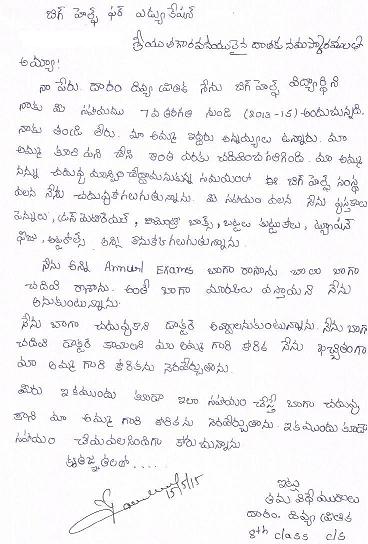 బిగ్ హెల్ప్ ఫర్ ఎడ్యుకేషన్
శ్రీయుత గౌరవనీయులైన దాతకు నమస్కారములతో
అయ్యా!
నా పేరు. దారం దివ్య నేను బిగ్ హెల్ప్ విద్యార్థిని
నాకు మీ సహాయము 7వ తరగతి నుండి (2013-15) అందుచున్నది.
నాకు తండ్రి లేరు. మా అమ్మ ఇద్దరు అన్నయ్యలు ఉన్నారు. మా
అమ్మ కూలి పని చేసి ఇంత వరకు చదివించగలిగింది. మా అమ్మ
నన్ను చదువు మాన్పించేద్దామనుకున్న సమయంలో ఈ బిగ్ హెల్ప్ సంస్థ
వలన నేను చదువుకోగలుగుతున్నాను. మీ సహాయం వలన నేను పుస్తకాలు
పెన్నులు, మెటీరియల్, జామెట్రీ బాక్స్, బట్టలు కుట్టుకూలి, ట్యూషన్
ఫీజు, అన్ని కొనుక్కోగలుగుతున్నాను.
నేను అన్ని Annual Exames బాగా రాసాను చాలా బాగా
చదివి రాసాను. అంతే బాగా మార్కులు వస్తాయని నేను
అనుకుంటున్నాను.
నేను బాగా చదువుకొని డాక్టర్ అవ్వాలనుకుంటున్నాను. నేను బాగా
చదివి డాక్టర్ కావాలని మా అమ్మ గారి కోరిక నేను ఖచ్చితంగా
మా అమ్మ గారి కోరికను నెరవేర్చుతాను.
మీరు ఇకముందు కూడా ఇలా సహాయం చేస్తే బాగా చదువు
కొని మా అమ్మ గారి కోరికను నెరవేర్చుతాను. ఇకముందు కూడా
సహాయం చేయవలసిందిగా కోరుచున్నాను
కృతజ్ఞతలతో.....
15/5/15
ఇట్లు
తమ విధేయురాలు
దారం. దివ్య
8th class c/s